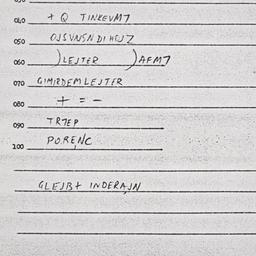 040 + Q TINKEVMT
050 OJSVNSNDIHEJZ
060 )LEJTER )AFMT
070 GIMIRDEMLEJTER
080 + = -
090 TRTEP
100 PORENC
GLEJB+ INDERAJN